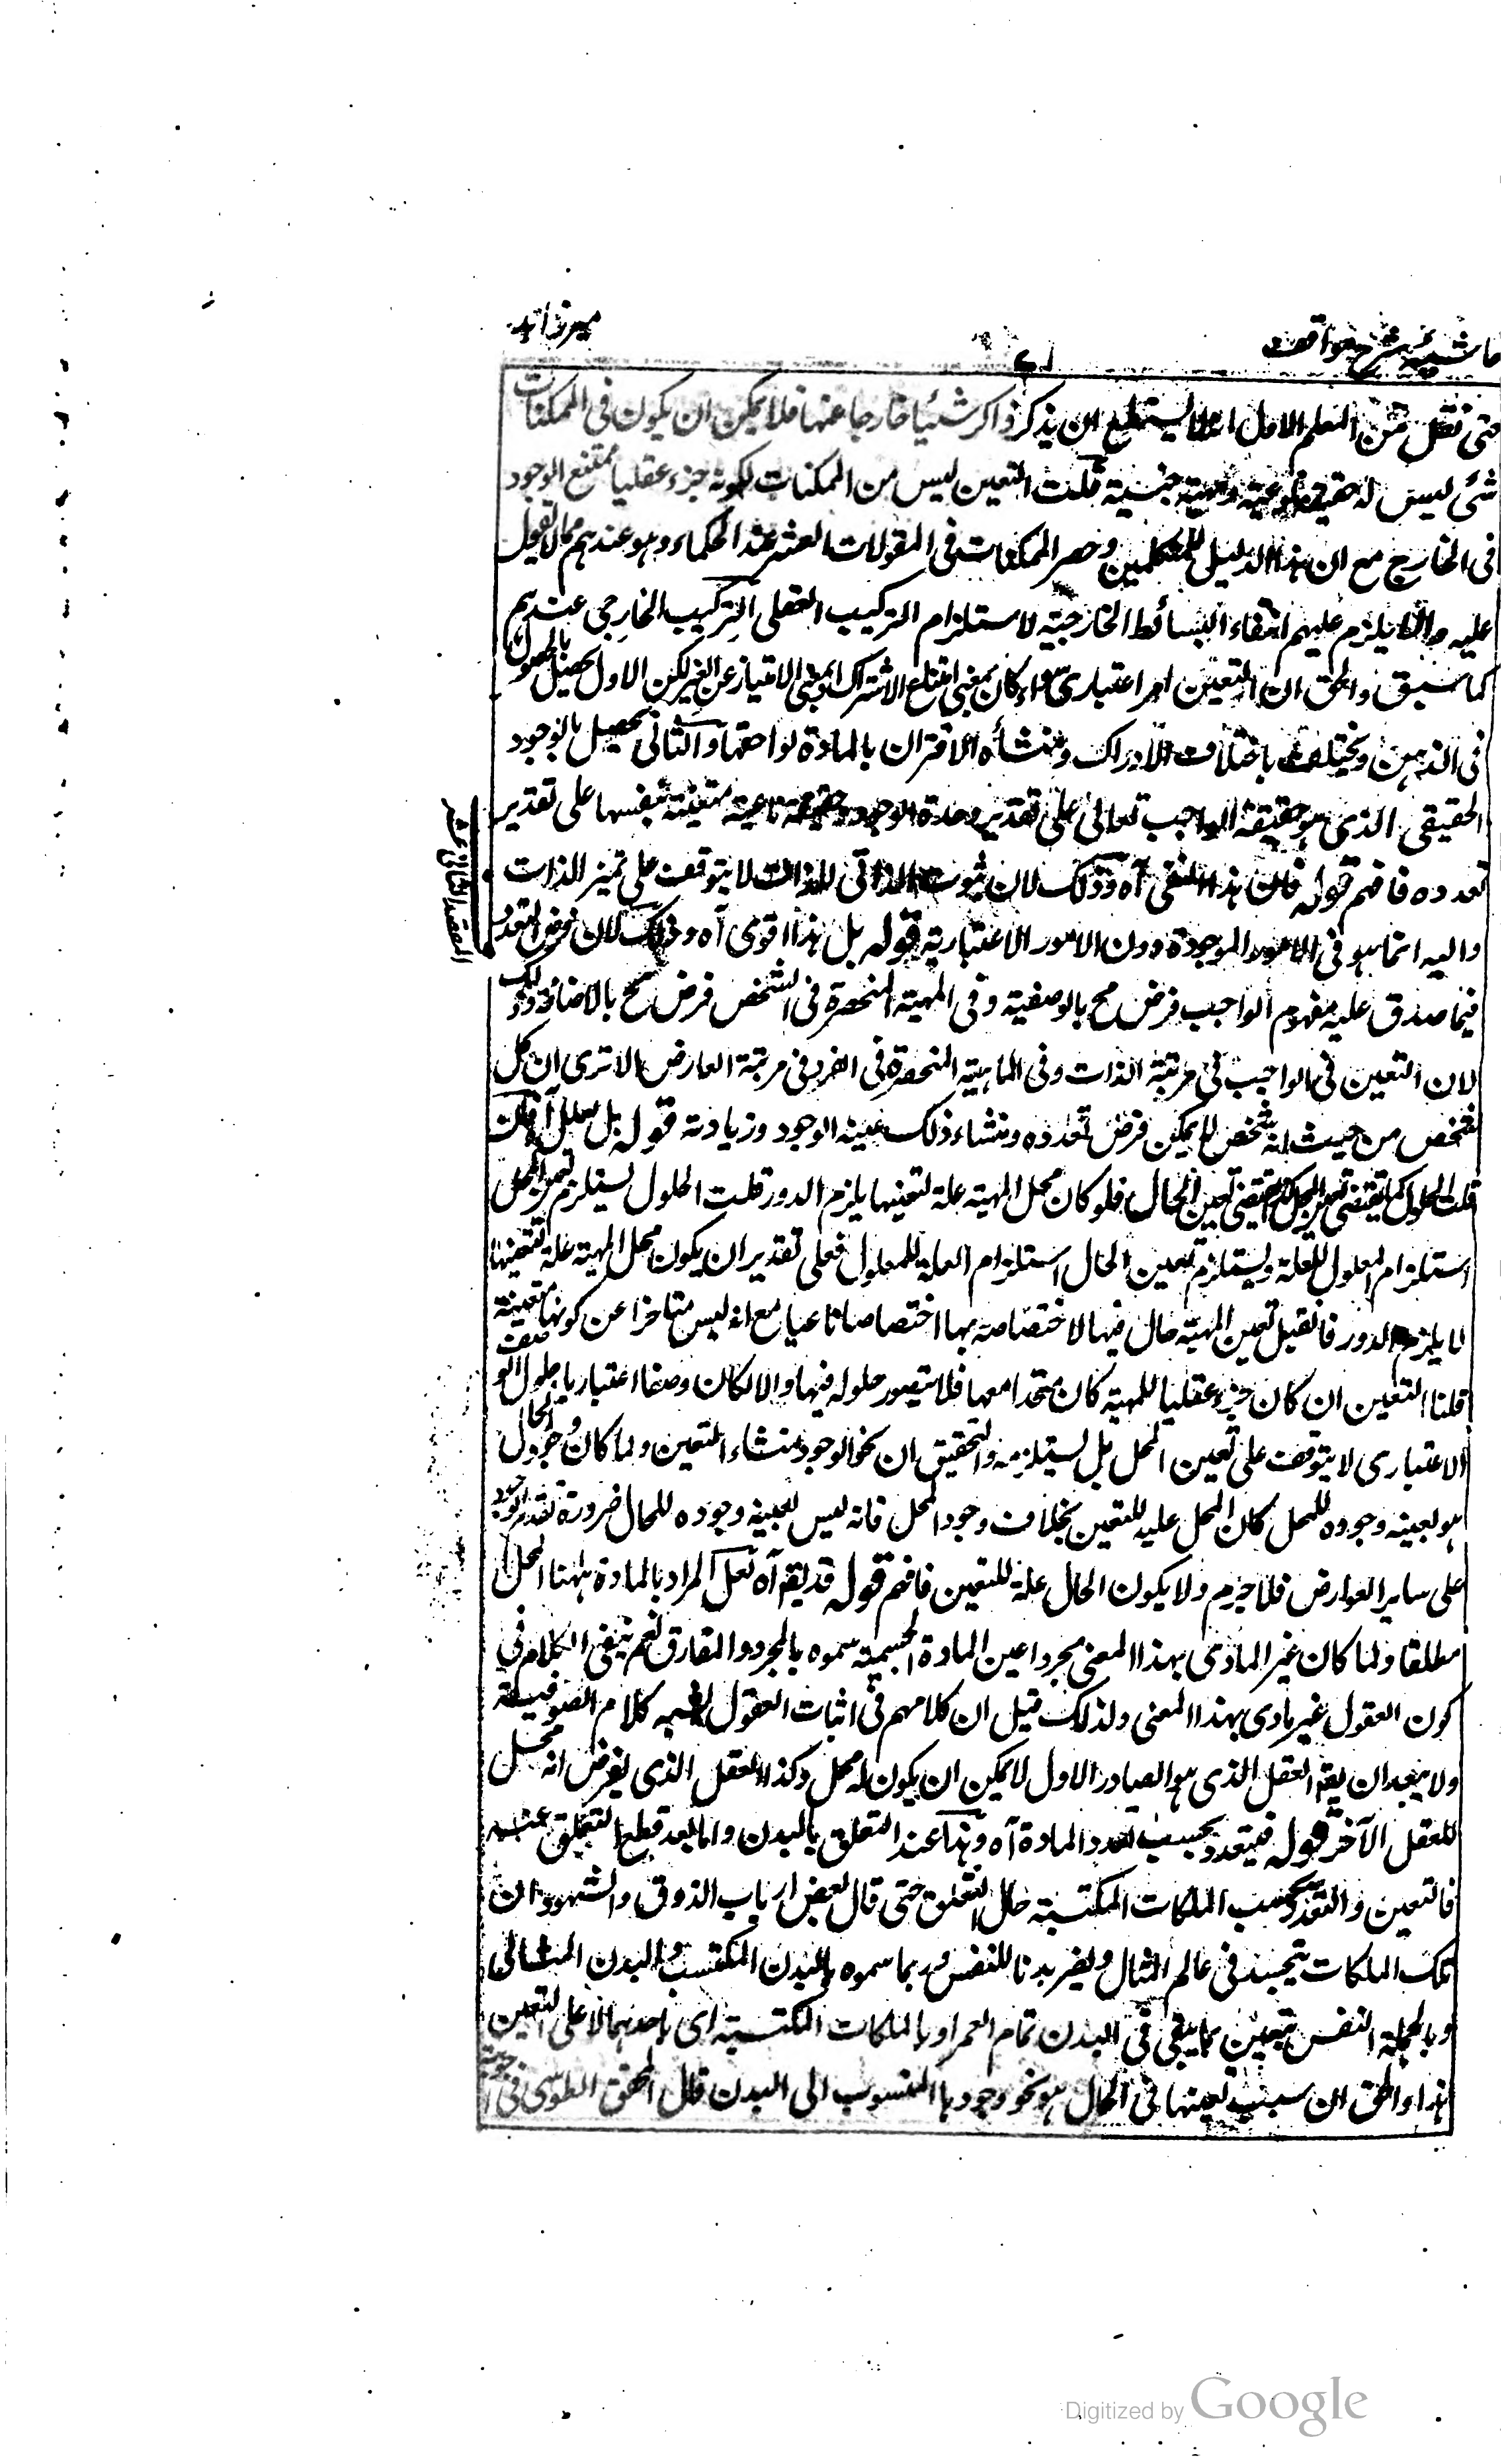 حاشیه شرح مواقف
میرزاهد
حتى نقل من المعلم الاول انه لا يستطيع ان يذكر ذاكر شيئا خارجا عنها فلا يمكن ان يكون فى الممكنات
شئ ليس له حقيقة نوعية و مهية جنسية قلت التعين ليس من الممكنات لكونه جزء عقليا ممتنع الوجود
فى الخارج مع ان هذا الدليل للمتكلمين وحصر الممكنات فى المقولات العشر عند الحكماء وهو عندهم مما لا تعويل
عليه والا يلزم عليهم انتفاء البسائط الخارجية لاستلزام التركيب العقلى التركيب الخارجى عندهم
كما سبق والحق ان التعين امر اعتبارى سواء كان بمعنى امتناع الاشتراك او بمعنى الامتياز عن الغير لكن الاول يحصل بالحصول
فى الذهن ويختلف باختلاف الادراك ومنشأه الاقتران بالمادة لواحقها والثانى يحصل بالوجود
الحقيقى الذى هو حقيقة الواجب تعالى على تقدير وحدة الوجود وحقيقة ناعتية متعينة بنفسها على تقدير
تعدده فافهم قوله فان هذا المنفى آه وذلك لان ثبوت الذاتى للذات لا يتوقف على تميز الذات
واليه انما هو فى الامور الموجودة دون الامور الاعتبارية قوله بل هذا اقوى آه وذلك لان فرض التعدد
فيما صدق عليه مفهوم الواجب فرض مح بالوصفية وفى المهية المنحصرة فى الشخص فرض مح بالاضافة وذلك
لان التعين فى الواجب فى مرتبة الذات وفى الماهية المنحصرة فى الفرد فى مرتبة العارض الا ترى ان كل
شخص من حيث انه شخص لا يمكن فرض تعدده ومنشاء ذلك عينية الوجود وزيادته قوله بل يعلل آه فان
قلت الحلول كما يقتضى تعين المحل يقتضى تعين الحال فلو كان محل المهية علة لتعينها يلزم الدور قلت الحلول يستلزم تعين المحل
استلزام المعلول للعلة ويستلزم تعين الحال استلزام العلة للمعلول فعلى تقدير ان يكون محل المهية علة لتعينها
لا يلزم الدور فان قيل تعين المهية حال فيها لاختصاصه بها اختصاصا ناعيا مع انه ليس متاخرا عن كونها متعينة
قلنا التعين ان كان جزء عقليا للمهية كان متحدا معها فلا يتصور حلوله فيها والا لكان وصفا اعتباريا حلول الوصف
الاعتبارى لا يتوقف على تعين المحل بل يستلزمه والتحقيق ان نحو الوجود منشاء التعين ولما كان وجود الحال
هو بعينه وجوده للمحل كان المحل علية للتعين بخلاف وجود المحل فانه ليس بعينه وجوده للحال ضرورة تقدم الوجود
على ساير العوارض فلا جرم ولا يكون الحال علة للتعين فافهم قوله قد يقم آه لعل المراد بالمادة ههنا المحل
مطلقا ولما كان غير المادى بهذا المعنى مجردا عن المادة الجسمية سموه بالمجرد والمفارق نعم ينبغى الكلام فى
كون العقول غير مادى بهذا المعنى ولذلك قيل ان كلامهم فى اثبات العقول يشبه كلام الصوفية
ولا يبعد ان يقم العقل الذى هو الصادر الاول لا يمكن ان يكون له محل وكذا العقل الذى يفرض انه محل
للعقل الآخر قوله فيتعدد بحسب تعدد المادة آه وهذا عند التعلق بالبدن واما بعد قطع التعلق عنه
فالتعين والتعدد بحسب الملكات المكتسبة حال التعلق حتى قال بعض ارباب الذوق والشهود ان
تلك الملكات يتجسد فى عالم المثال ويصير بدنا للنفس وربما سموه بالبدن المكتسب والبدن المثالى
وبالجملة النفس يتعين بما يبقى فى البدن تمام العمر او بالملكات المكتسبة اى باحدهما لا على التعين
هذا والحق ان سبب تعينها فى الحال هو نحو وجودها المنسوب الى البدن قال المحقق الطوسى فى